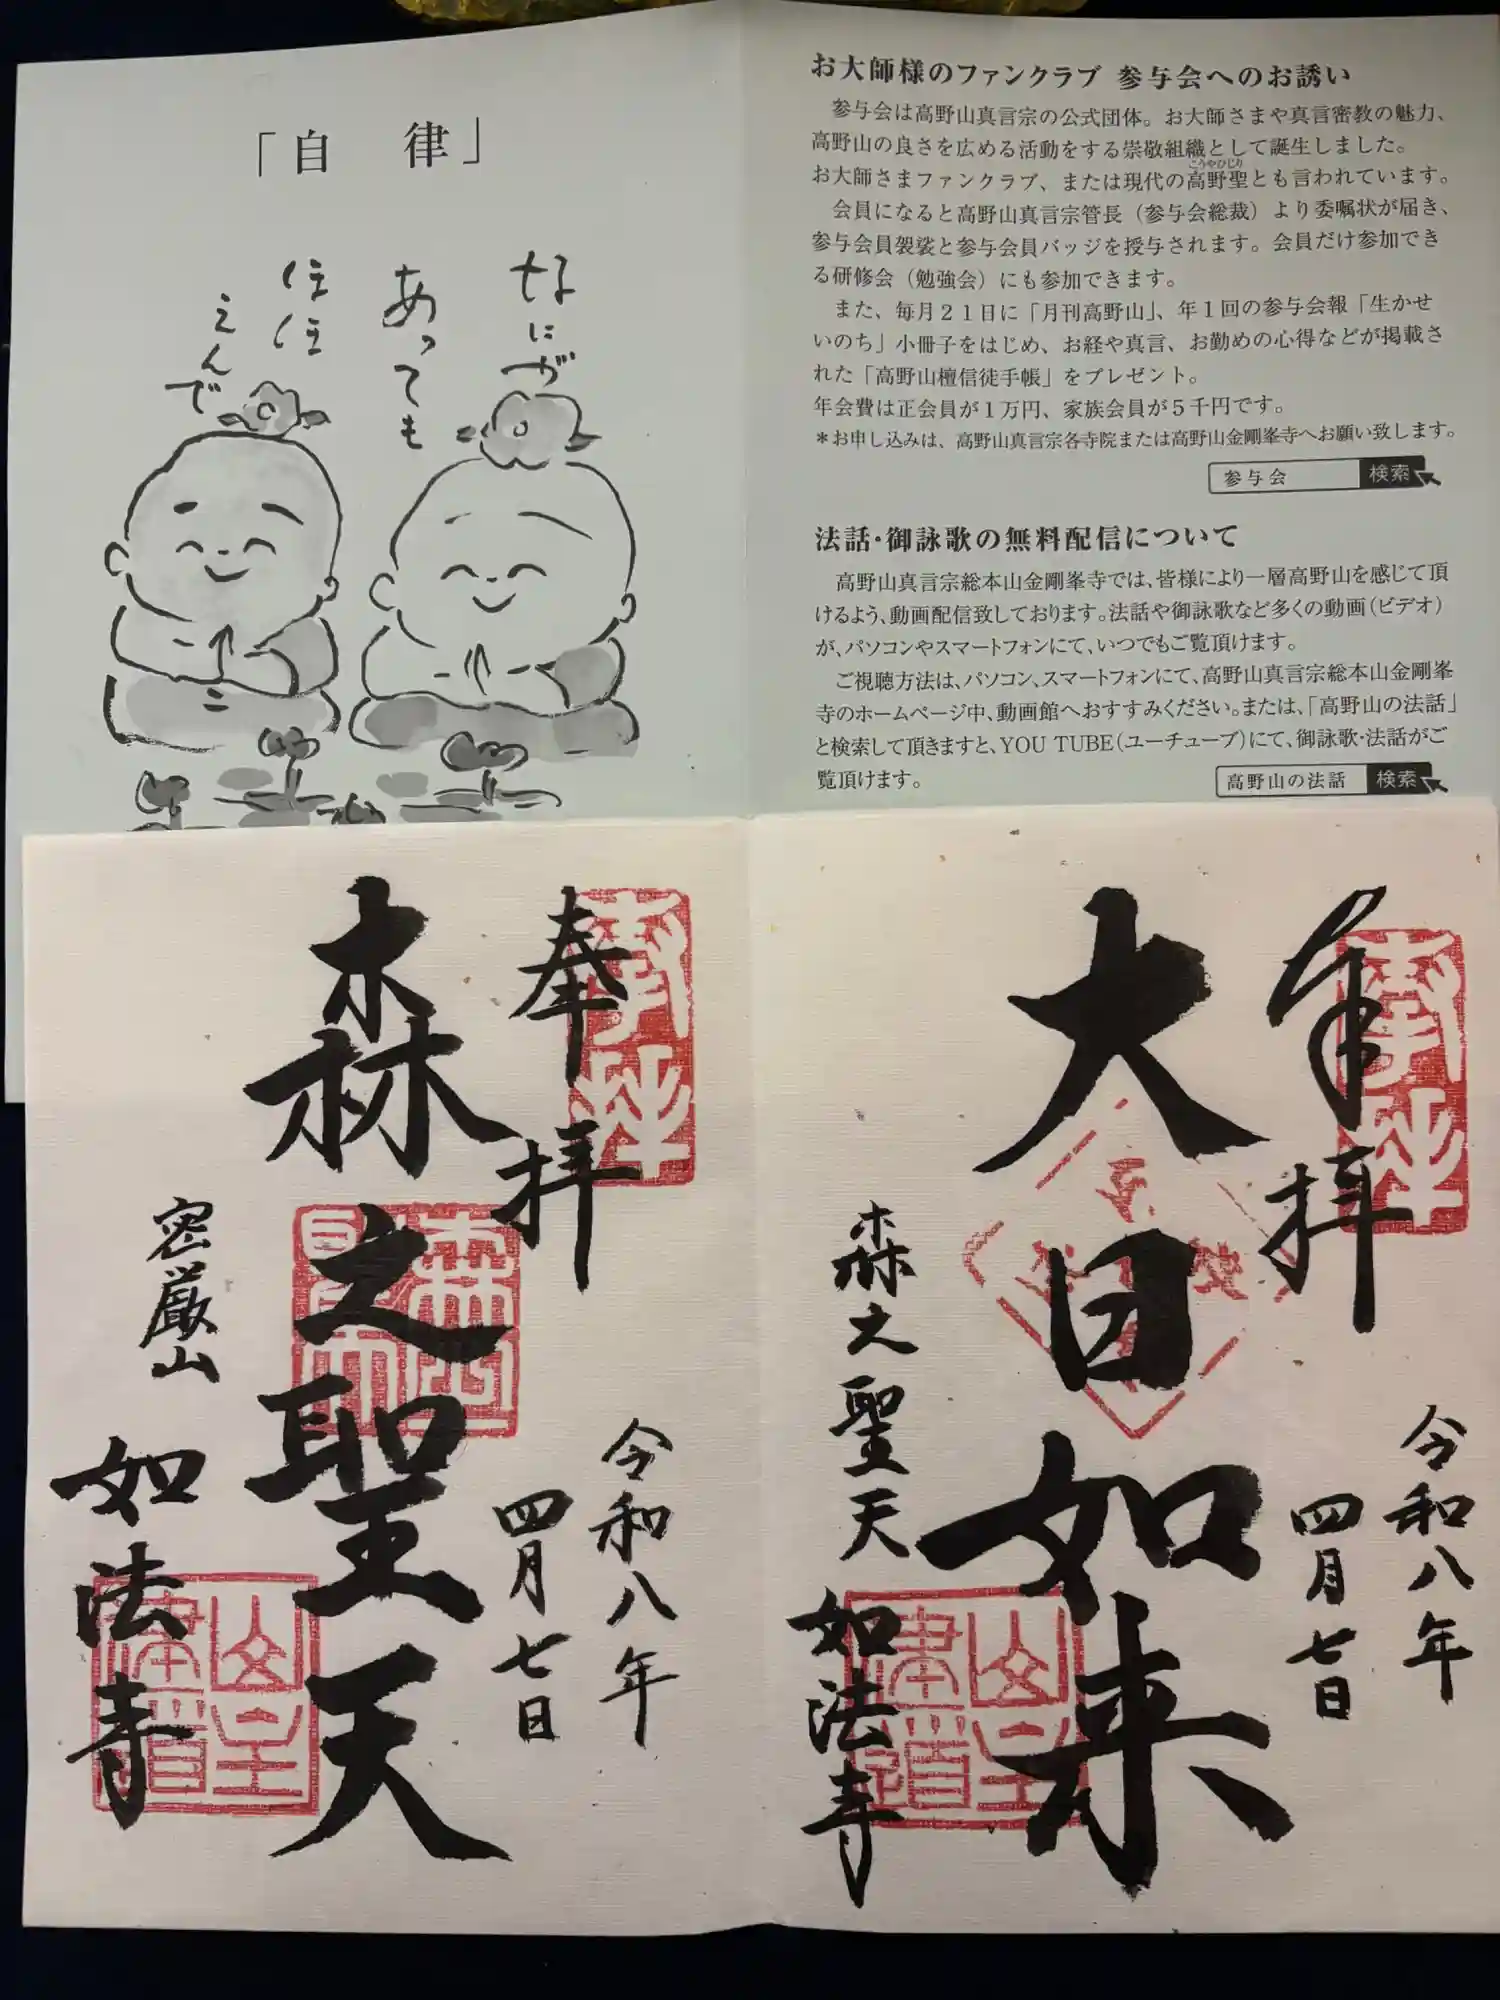 「自　律」
なにが
あっても
ほほ
えんで
お大師様のファンクラブ 参与会へのお誘い
参与会は高野山真言宗の公式団体。お大師さまや真言密教の魅力、
高野山の良さを広める活動をする崇敬組織として誕生しました。
こうやひじり
お大師さまファンクラブ、または現代の高野聖とも言われています。
会員になると高野山真言宗管長（参与会総裁）より委嘱状が届き、
参与会員袈裟と参与会員バッジを授与されます。会員だけ参加でき
る研修会（勉強会）にも参加できます。
また、毎月２１日に「月刊高野山」、年１回の参与会報「生かせ
いのち」小冊子をはじめ、お経や真言、お勤めの心得などが掲載さ
れた「高野山檀信徒手帳」をプレゼント。
年会費は正会員が１万円、家族会員が５千円です。
＊お申し込みは、高野山真言宗各寺院または高野山金剛峯寺へお願い致します。
参与会 検索
法話・御詠歌の無料配信について
高野山真言宗総本山金剛峯寺では、皆様により一層高野山を感じて頂
けるよう、動画配信致しております。法話や御詠歌など多くの動画（ビデオ）
が、パソコンやスマートフォンにて、いつでもご覧頂けます。
ご視聴方法は、パソコン、スマートフォンにて、高野山真言宗総本山金剛峯
寺のホームページ中、動画館へおすすみください。または、「高野山の法話」
と検索して頂きますと、YOU TUBE（ユーチューブ）にて、御詠歌・法話がご
覧頂けます。
高野山の法話 検索
奉拝
令和八年
四月七日
大日如来
森之聖天
如法寺
奉拝
令和八年
四月七日
森之聖天
密厳山
如法寺
奉拝
奉拝